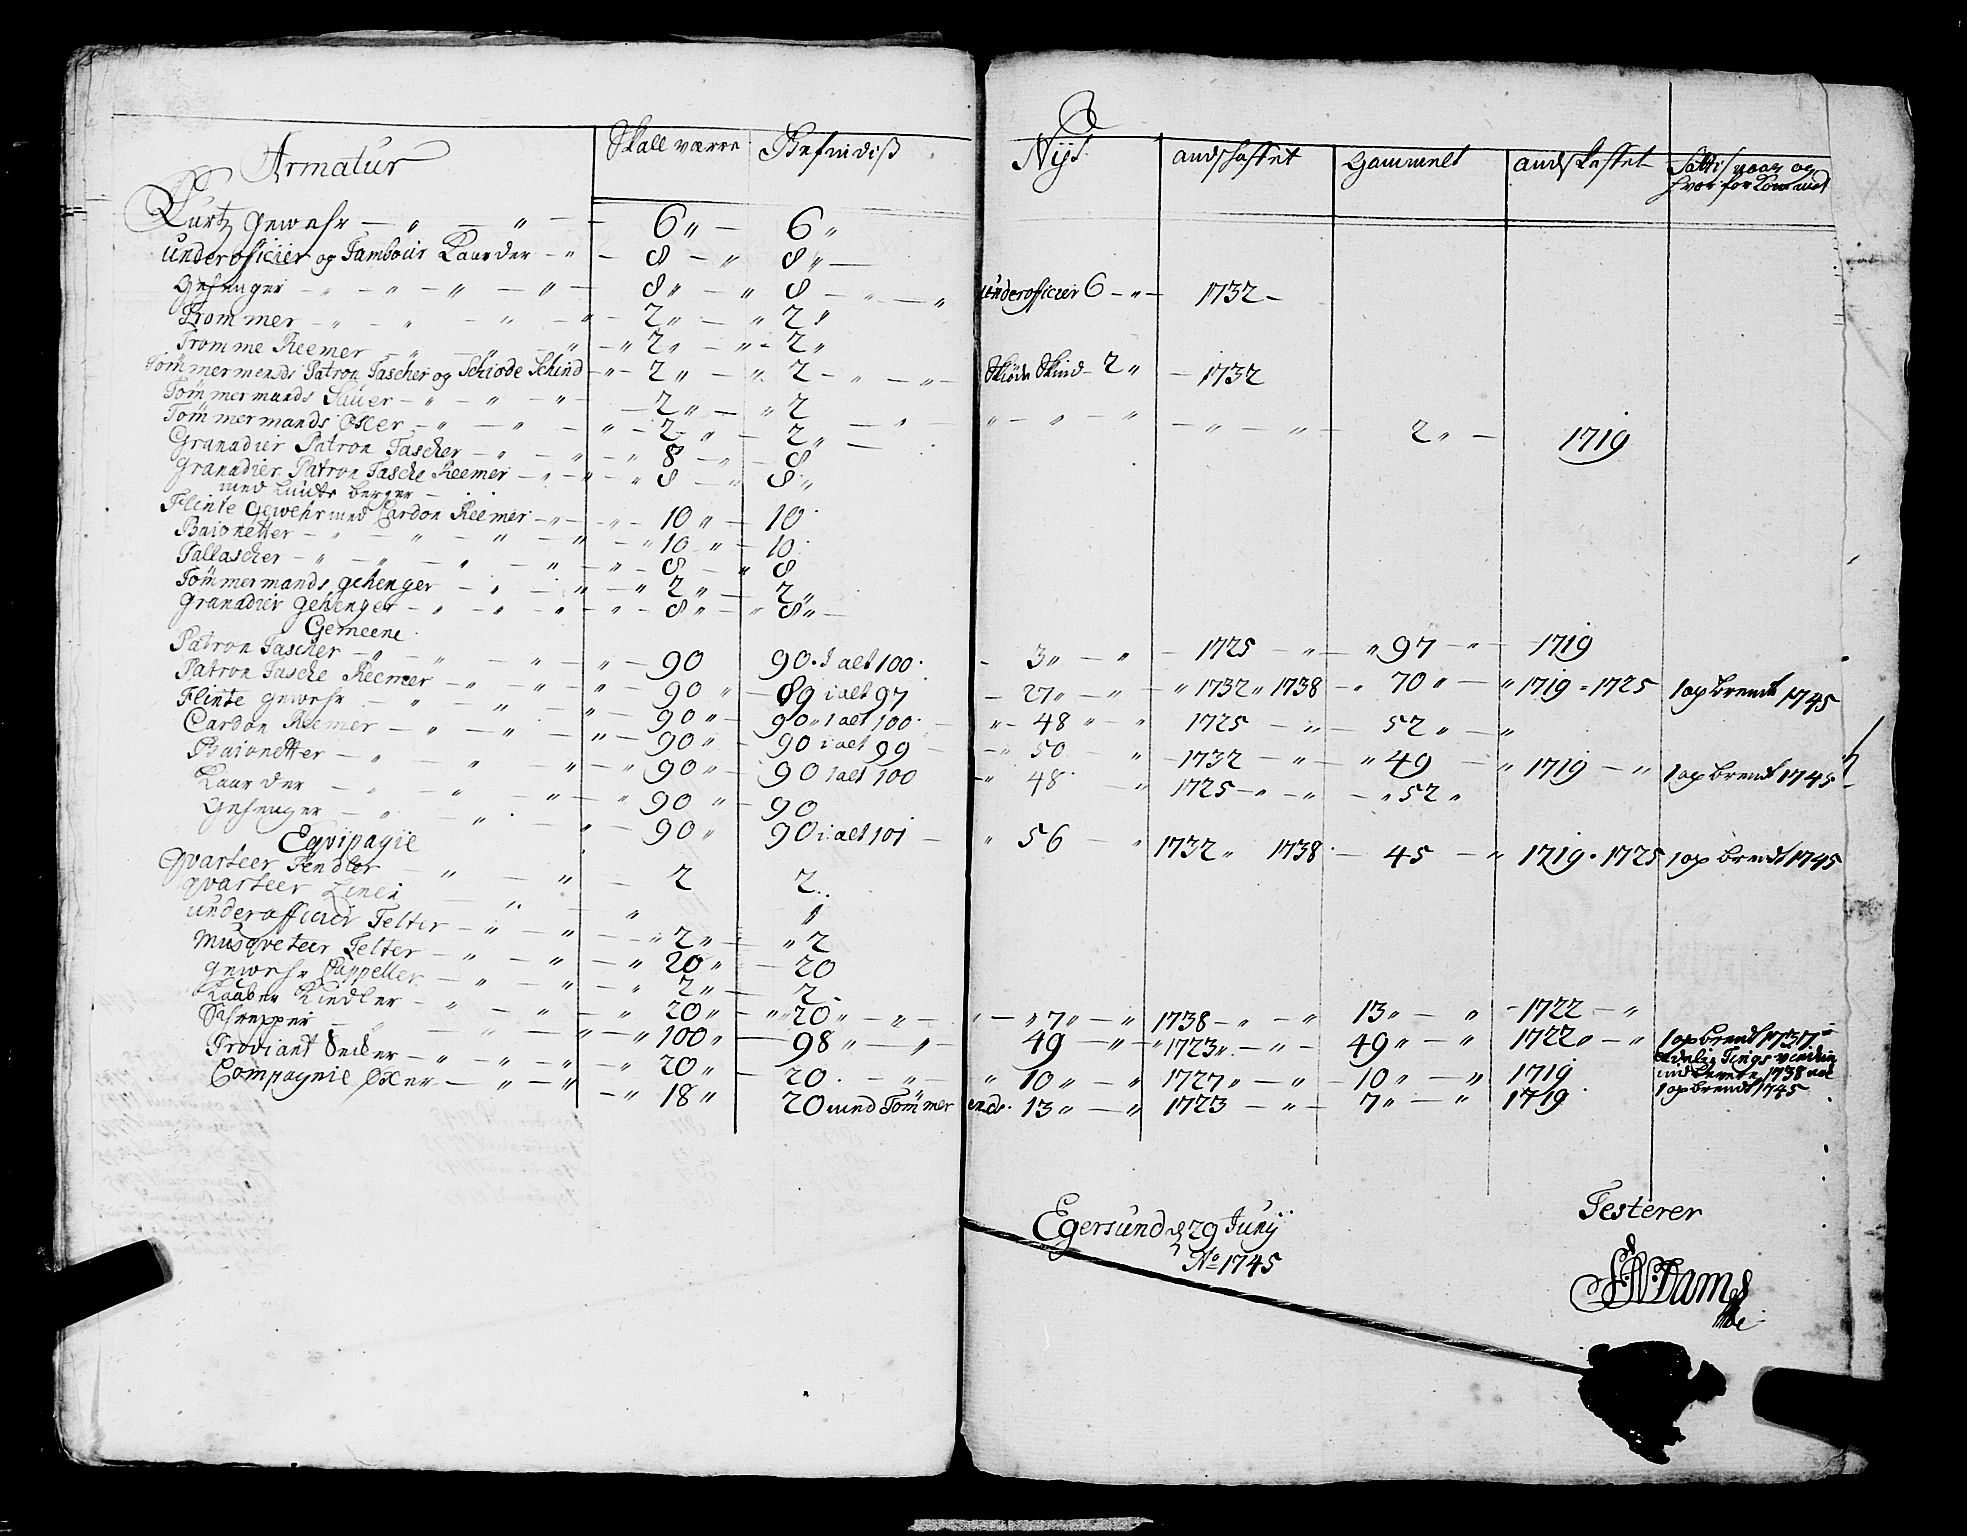 Armatur Skall værre Befindis Nyt andskaffet Gammelt andskaffet
hvor for Kommet
Kurtz gewehr 6 6
Underoficier og Tambour Kaarder 8 8
Gehenger 8 8 Underofficier 6 1732
Trommer 2 2
Tromme Reemer 2 2
Tømmermends Patron Tascher og Schiøde Schind 2 2 Skiøde Skind 2 1732
Tømmermands 2 2
Tømmermands Øxer 2 2 2 1719
Granadier Patron Tascher 8 8
Granadier Patron Tasche Reemer 8 8
med Lunte berger
Flinte Gewehr med Cardon Riemer 10 10
Baionetter 10 10
Pallascher 8 8
Tømmermands gehenger 2 2
Granadier Gehenger 8 8
Gemeene
Patron Tascher 90 90. I alt 100. 3 1725 97 1719
Patron Tasche Reemer 90 89 i alt 97 27 1732 1738 70 1719 - 1725 1 opbrendt 1745
Flinte gewehr 90 90 I alt 100. 48 1725 52
Cardon Reemer 90 90 i alt 99 50 1732 49 1719 1 opbrendt 1745
Baionetter 90 90 I alt 100 48 1725 52
Kaarder 90 90
Gehenger 90 90 i alt 101 56 1732 1738 45 1719 - 1725 1 opbrendt 1745
Eqvipagie
Qvarteer Fendler 2 2
qvarteer Liner 1
Underofficier Telter 2 2
Musqveteer Telter 20 20
gewehr Cappeller 2 2
Kaaber Kiedler 20 20 7 1738 13 1722
Schrepper 100 98 49 1723 49 1722 1 opbrendt 1737
Proviant Secker 20 20 10 1727 10 1719
Compagnie Øxer 18 20 med Tømmer mends. 13 1723 7 1719
1 opbrendt 1745
Egersund d 29 Junij
No 1745
Testerer